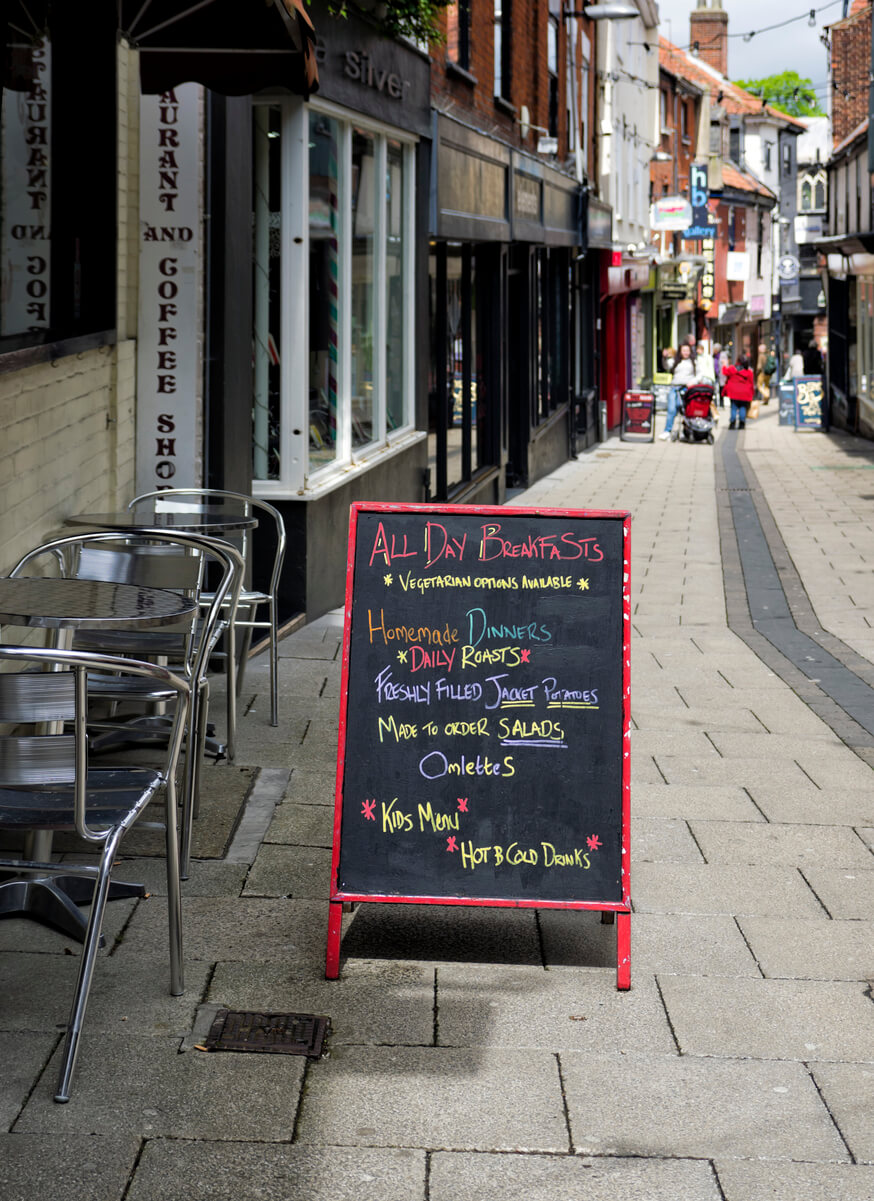 silver
AURANT
AND
COFFEE
SHOP
STAURANT
AND
COFF
hb
gallery
ALL DAY BREAKFASTS
* VEGETARIAN OPTIONS AVAILABLE *
Homemade DINNERS
*DAILY ROASTS*
FRESHLY FILLED JACKET POTATOES
MADE TO ORDER SALADS,
OmletteS
* KIDS MENU *
* HOT & COLD DRINKS *